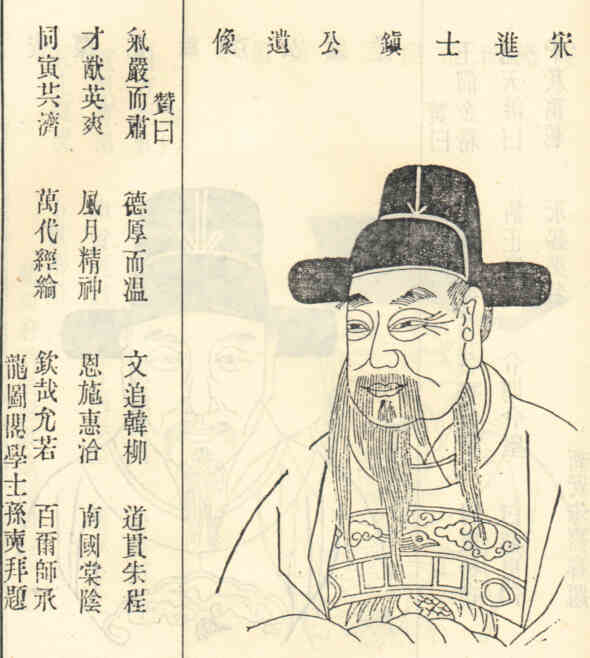 宋進士鎮公遺像
贊曰
氣嚴而肅 德厚而温 文追韓柳 道貫朱程
才猷英爽 風月精神 恩施惠洽 南國棠陰
同寅共濟 萬代經綸 欽哉允若 百爾師承
龍圖閣學士孫奭拜題